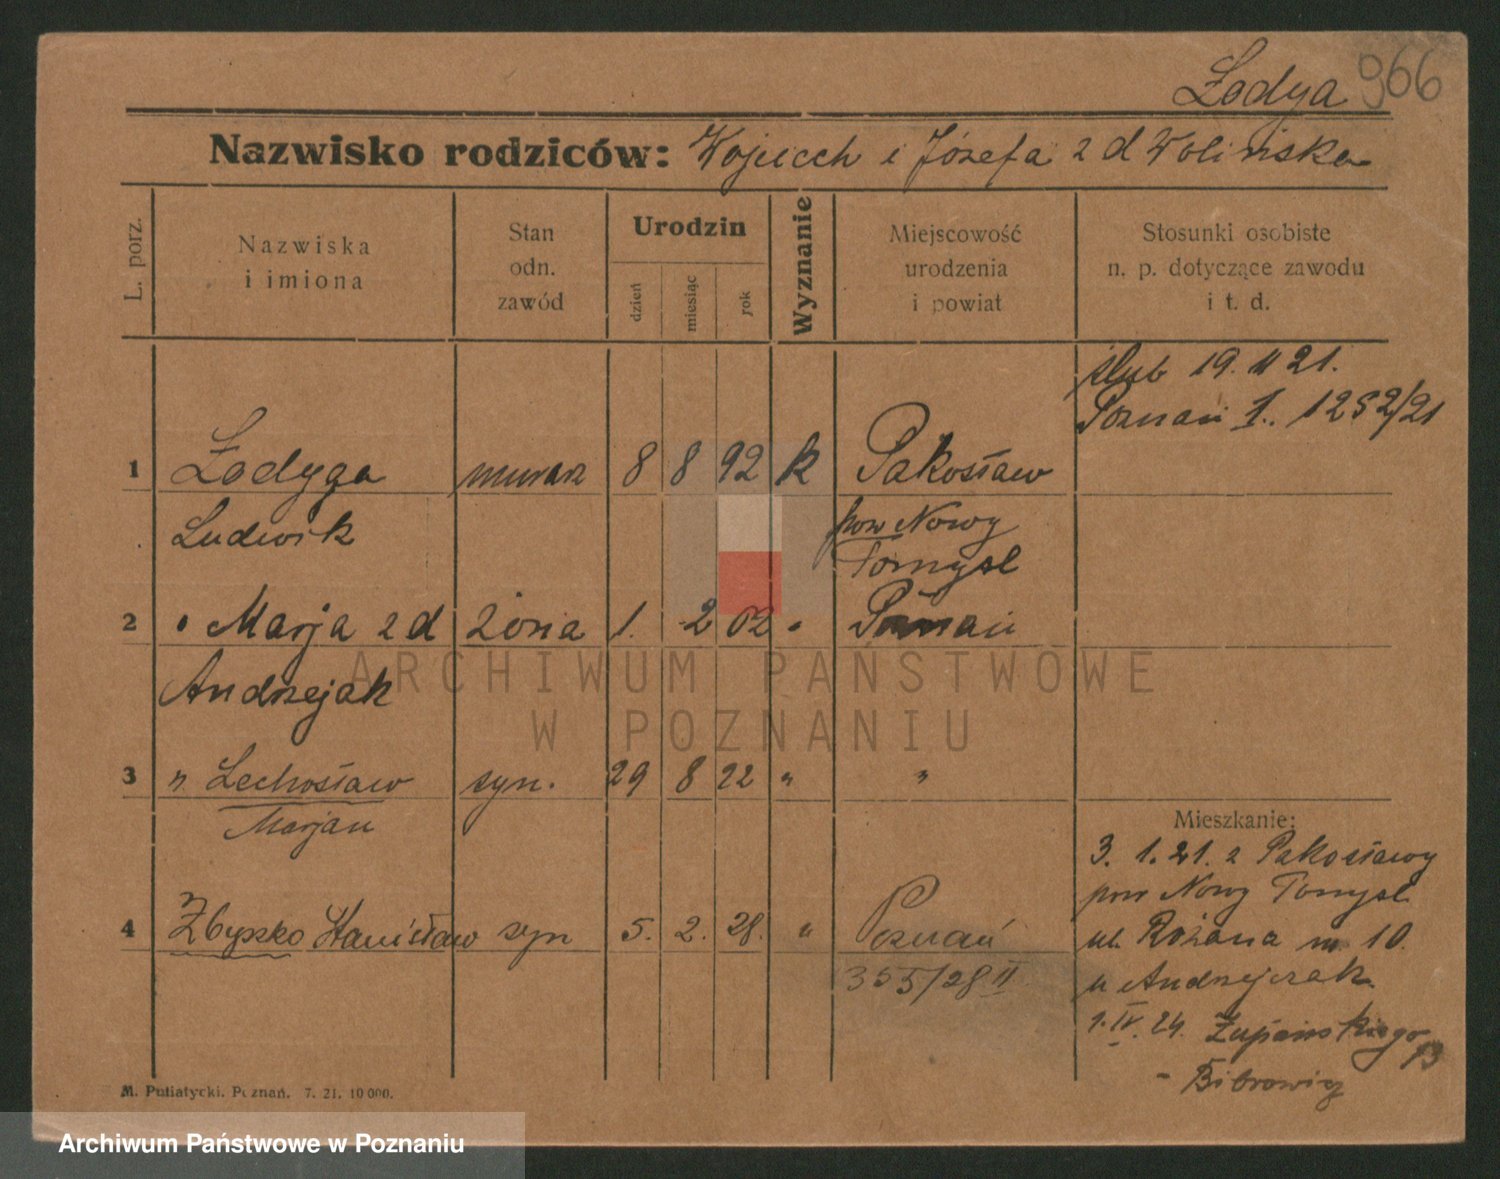 Łodyga 966
Nazwisko rodziców: Wojciech i Józefa z d Wolińska
L. porz.
Nazwiska
i imiona
Stan
odn.
zawód
Urodzin
dzień
miesiąc
rok
Wyznanie
Miejscowość
urodzenia
i powiat
Stosunki osobiste
n. p. dotyczące zawodu
i t. d.
ślub 19. 11 21.
Poznań I. 1252/21
1 Łodyga murarz 8 8 92 k Pakosław
Ludwik pow Nowy
Tomysl
2 " Marja z d żona 1. 2 02 " Poznań
Andrzejak
3 " Lechosław syn. 29 8 22 " "
Marjan
Mieszkanie:
3. 1. 21. z Pakosławy
pow Nowy Tomysl
ul. Różana m. 10.
u Andrzejczak
1. IV. 24. Żupańskiego 13
- Bibrowicz
4 Zbyszko Stanisław syn 5. 2. 28. " Poznań
355/28 II
M. Putiatycki. Poznań. 7. 21. 10 000.
ARCHIWUM PAŃSTWOWE
W POZNANIU
Archiwum Państwowe w Poznaniu